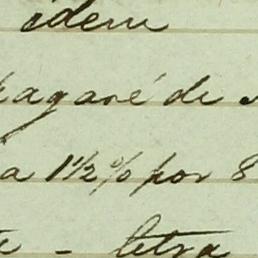 idem
pagaré de
a 1 1/2 % por 8
letra